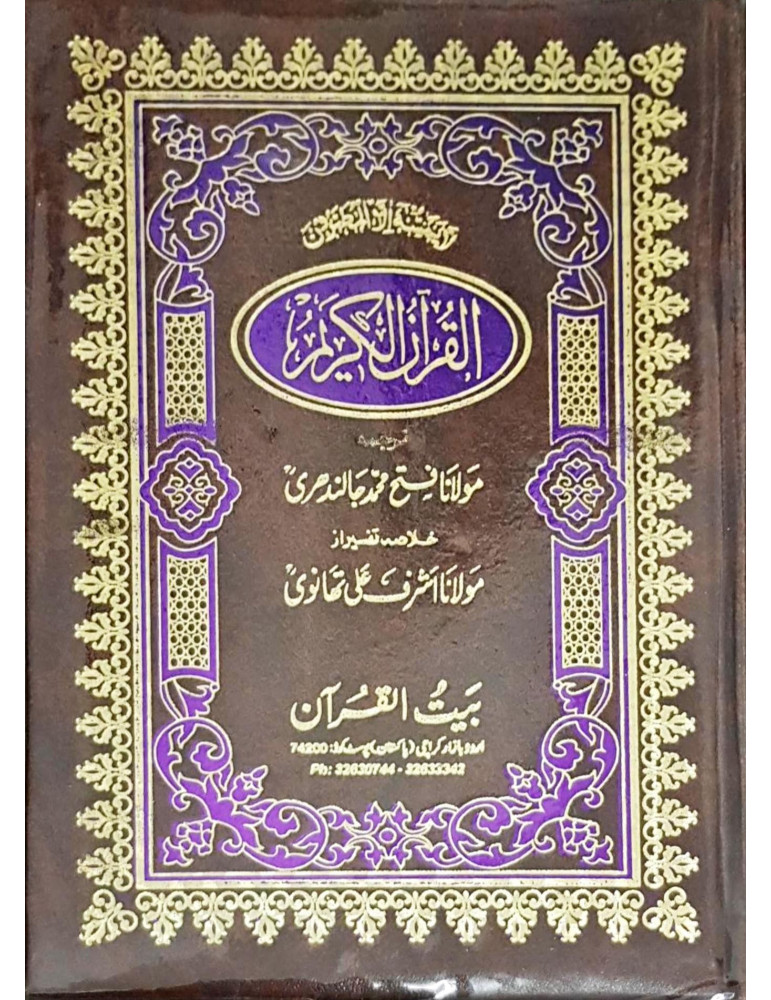 لا یمسه إلا المطهرون
القرآن الکریم
ترجمہ
مولانا فتح محمد جالندھریؒ
خلاصہ تفسیر از
مولانا اشرف علی تھانویؒ
بیت القرآن
اردو بازار کراچی (پاکستان) پوسٹ کوڈ: 74200
Ph: 32630744 - 32633342